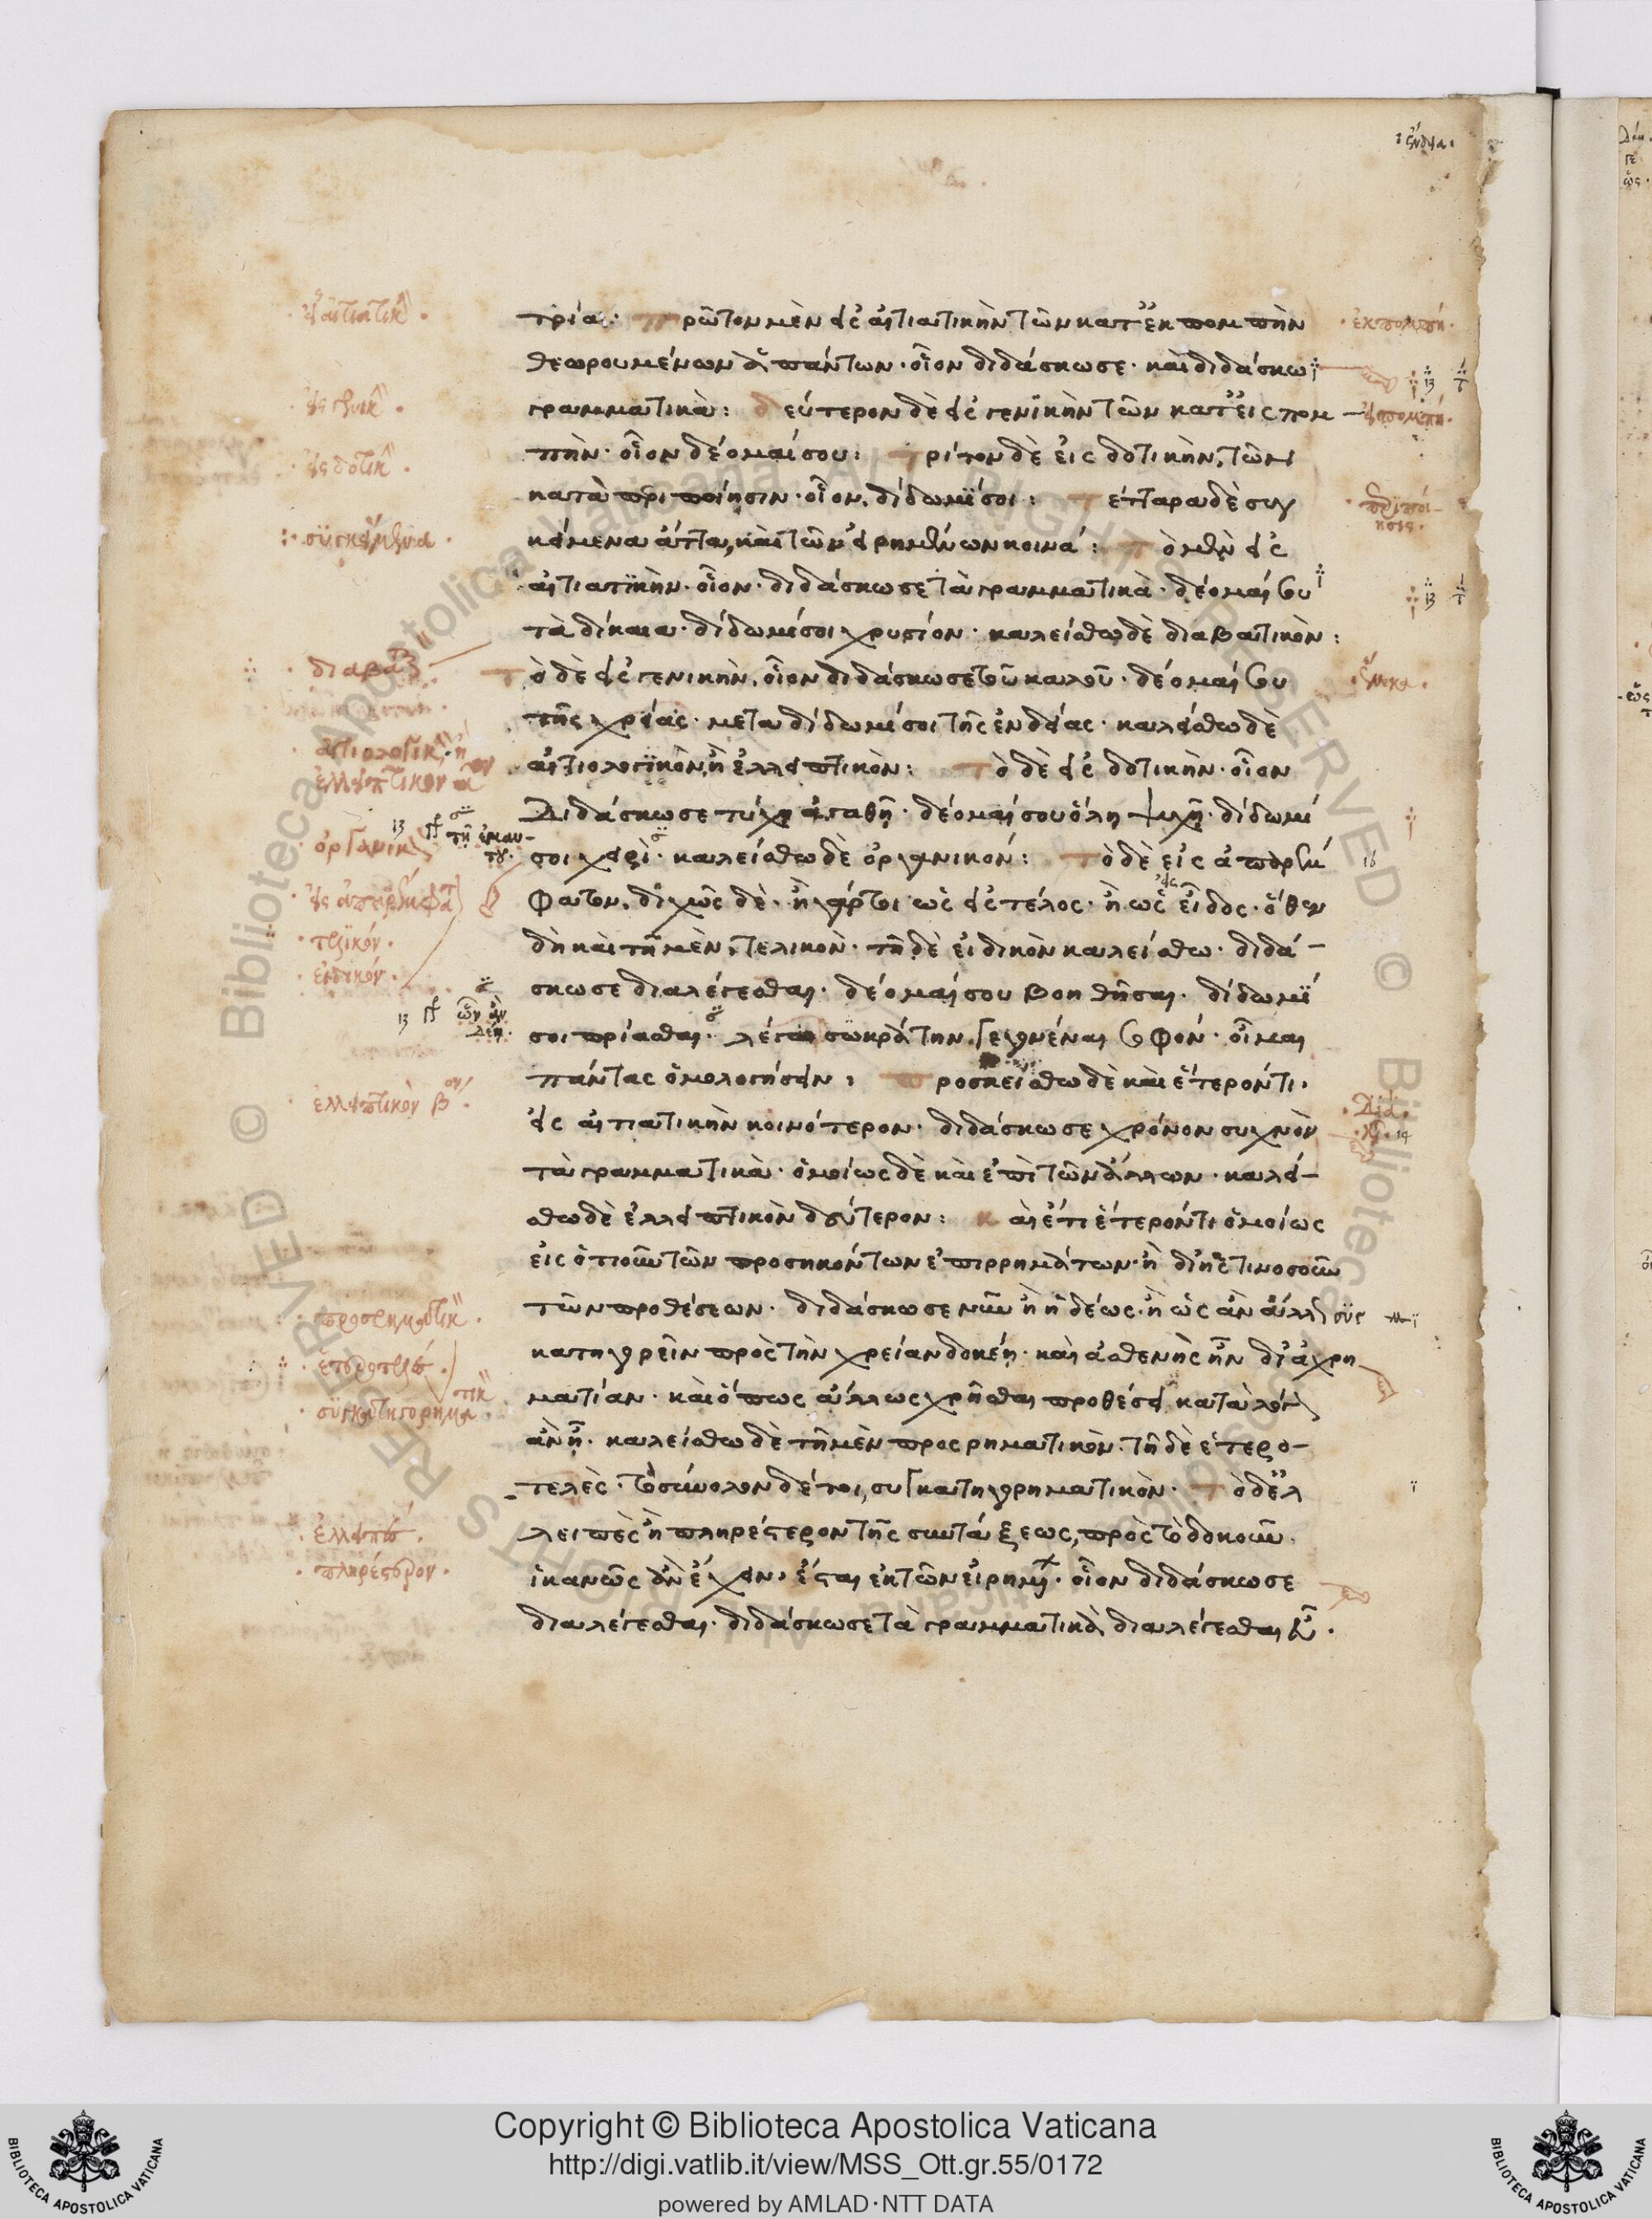 τρία: πρῶτον μὲν εἰς αἰτιατικὴν τῶν κατ' ἐκπομπὴν
θεωρουμένων ἁπάντων· οἷον διδάσκω σε· καὶ διδάσκω
γραμματικά: δεύτερον δὲ εἰς γενικὴν τῶν κατ' εἰσπομ
πήν· οἷον δέομαί σου: τρίτον δὲ εἰς δοτικήν, τῶν
κατὰ περιποίησιν· οἷον, δίδωμί σοι: τέτταρα δὲ συγ
κείμενα ἄττα, καὶ τῶν εἰρημένων κοινά: τὸ μὲν εἰς
αἰτιατικήν· οἷον· διδάσκω σε τὰ γραμματικά· δέομαί σου
τὰ δίκαια· δίδωμί σοι χρυσίον· καλείσθω δὲ διαβατικόν:
τὸ δὲ εἰς γενικήν, οἷον διδάσκω σε τοῦ καλοῦ· δέομαί σου
τῆς χρείας· μεταδίδωμί σοι τῆς ἐνδείας· καλείσθω δὲ
αἰτιολογικόν, ἢ ἐλλειπτικόν: τὸ δὲ εἰς δοτικήν· οἷον
Διδάσκω σε τύχῃ ἀγαθῇ· δέομαί σου ὅλῃ ψυχῇ· δίδωμί
σοι χειρί· καλείσθω δὲ ὀργανικόν: τὸ δὲ εἰς ἀπαρέμ
φατον. διχῶς δέ· ἢ γάρτοι ὡς εἰς τέλος· ἢ ὡς εἰς εἶδος· ὅθεν
δὴ καὶ τῇ μέν, τελικόν· τῇ δὲ εἰδικὸν καλείσθω· διδά-
σκω σε διαλέγεσθαι· δέομαί σου βοηθῆσαι· δίδωμί
σοι πρίασθαι· λέγω σωκράτην γεγονέναι σοφόν· οἶμαι
πάντας ὁμολογήσειν: προσκείσθω δὲ καὶ ἕτερόν τι·
εἰς αἰτιατικὴν κοινότερον· διδάσκω σε χρόνον συχνὸν
τὰ γραμματικά· ὁμοίως δὲ καὶ ἐπὶ τῶν ἄλλων· καλεί-
σθω δὲ ἐλλειπτικὸν δεύτερον: καὶ ἔτι ἕτερόν τι ὁμοίως
εἰς ὁτιοῦν τῶν προσηκόντων ἐπιρρημάτων· ἢ δι' ἧς τινοσοῦν
τῶν προθέσεων· διδάσκω σε νῦν ἢ ἡδέως· ἢ ὡς ἂν ἄλλους
κατηγορεῖν πρὸς τὴν χρείαν δοκέῃ· καὶ ἀσθενὴς ἦν δι' ἀχρη
ματίαν· καὶ ὅπως ἄλλως χρῆσθαι προθέσει κατὰ λόγον
ἂν ᾖ· καλείσθω δὲ τῇ μὲν προσρηματικόν· τῇ δὲ ἑτερο-
τελές· τὸ σύνολον δέ τοι, συγκατηγορηματικόν· τὸ δ' ἐλ
λειπὲς ἢ πληρέστερον τῆς συντάξεως, πρὸς τὸ δοκοῦν
ἱκανῶς ἂν ἔχειν, ἔσται ἐκ τῶν εἰρημένων· οἷον διδάσκω σε
διαλέγεσθαι· διδάσκω σε τὰ γραμματικὰ διαλέγεσθαι
ἐκπομπή·
διαβατ
ὀργανικ
τελικόν·
ἐλλειπτικὸν βον
πληρέστερον·
Copyright © Biblioteca Apostolica Vaticana
http://digi.vatlib.it/view/MSS_Ott.gr.55/0172
powered by AMLAD·NTT DATA
BIBLIOTECA APOSTOLICA VATICANA
BIBLIOTECA APOSTOLICA VATICANA